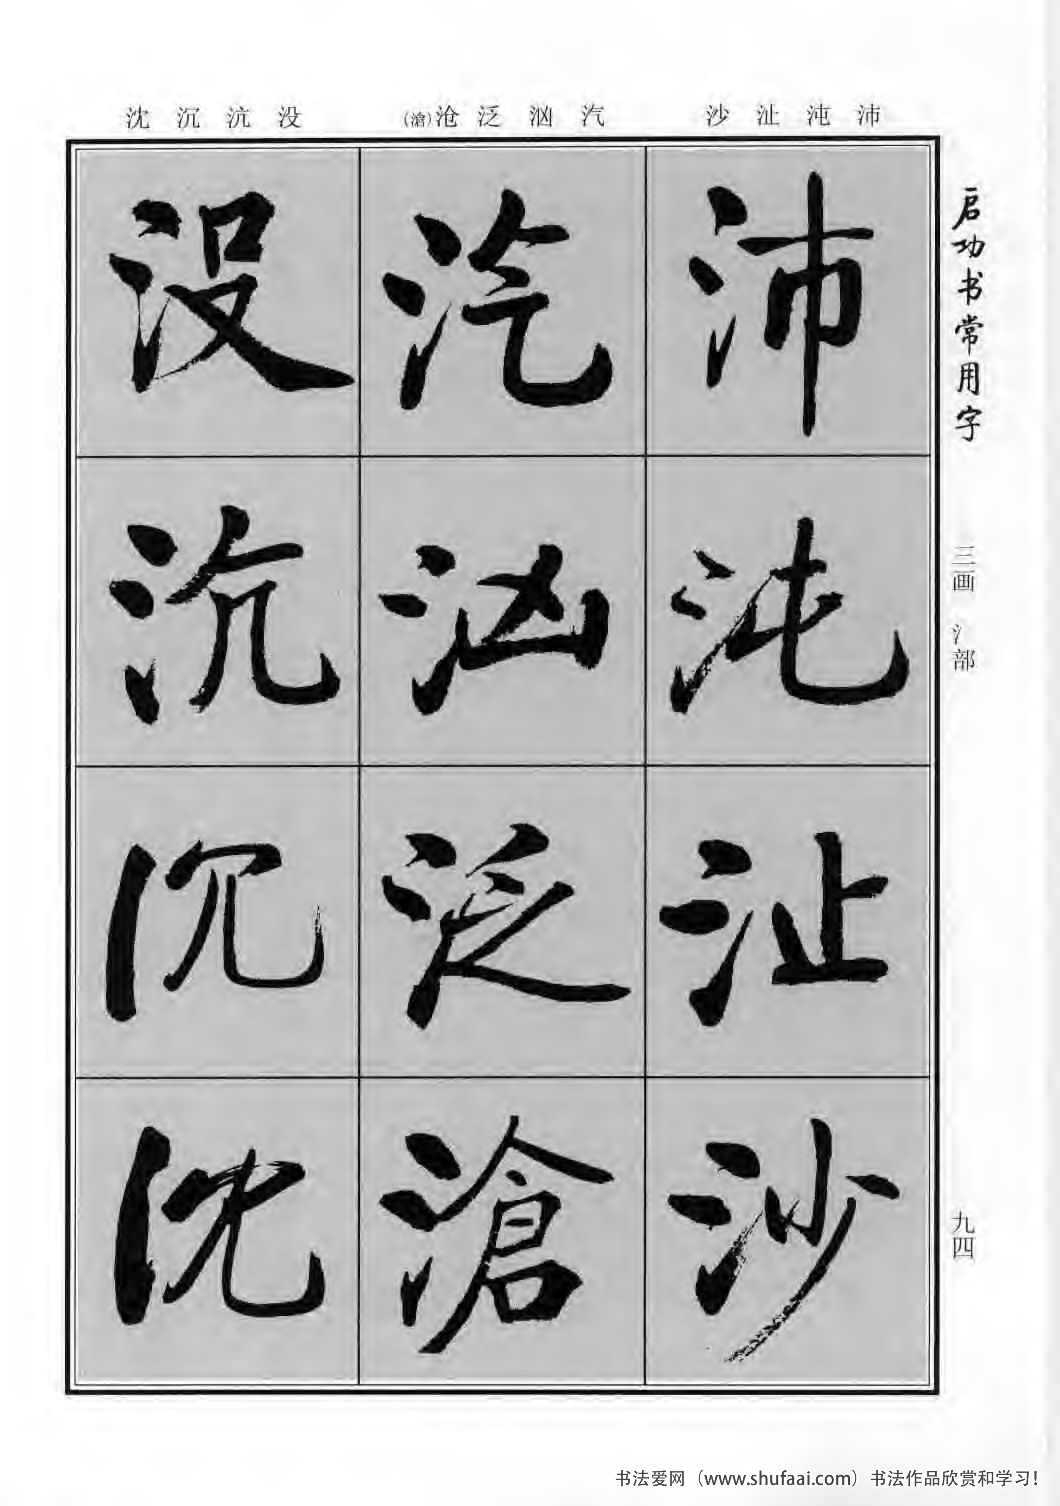 启功书常用字
三画 氵部
九四
沛 沌 沚 沙
汽 汹 泛 沧(滄)
没 沆 沉 沈
沛沌沚沙
汽汹泛滄
没沆沉沈
书法爱网（www.shufaai.com）书法作品欣赏和学习!